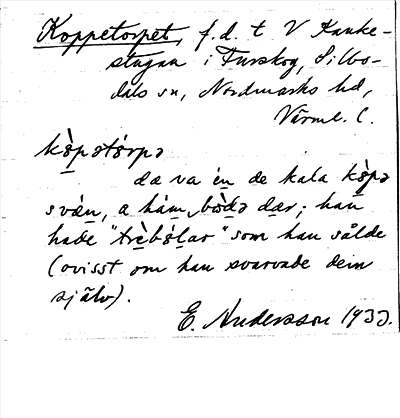 Koppetorpet, f.d. t V Kanke-
stugan i Furskog, Silbo-
dals sn, Nordmarks hd,
Värml. l.
kɵ̀pətɵ́rpə
da va én de kala kɵ̀pə
svän, a hám bòdə dar; han
hade "trèbɵ́lar" som han sålde
(ovisst om han svarvade dem
själv).
E. Andersson 1933.